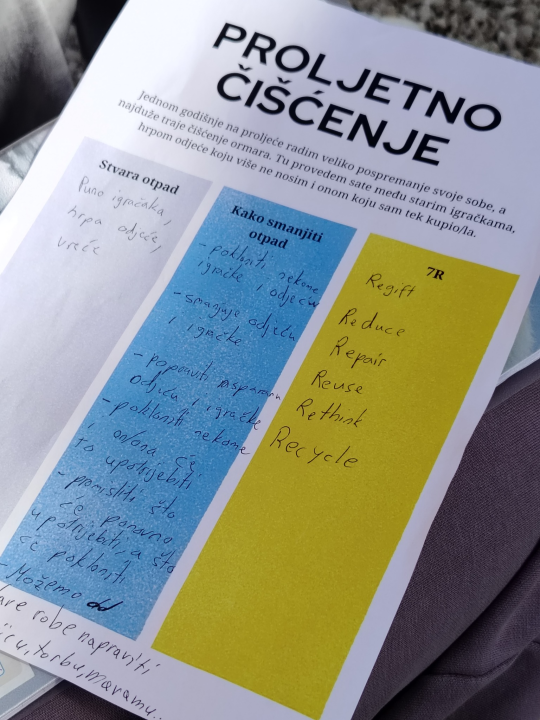 PROLJETNO
ČIŠĆENJE
Jednom godišnje na proljeće radim veliko pospremanje svoje sobe, a
najduže traje čišćenje ormara. Tu provedem sate među starim igračkama,
hrpom odjeće koju više ne nosim i onom koju sam tek kupio/la.
Stvara otpad
Puno igračaka,
hrpa odjeće,
vreće
Kako smanjiti
otpad
- pokloniti nekome
igračke i odjeću
- smanjuje odjeću
i igračke
- popraviti
odjeću i igračke
- pokloniti nekome
i on/ona će
to upotrijebiti
- promisliti što
će ponovno
upotrijebiti, a što
će pokloniti.
- Možemo od
robe napraviti
torbu, maramu...
7R
Regift
Reduce
Repair
Reuse
Rethink
Recycle